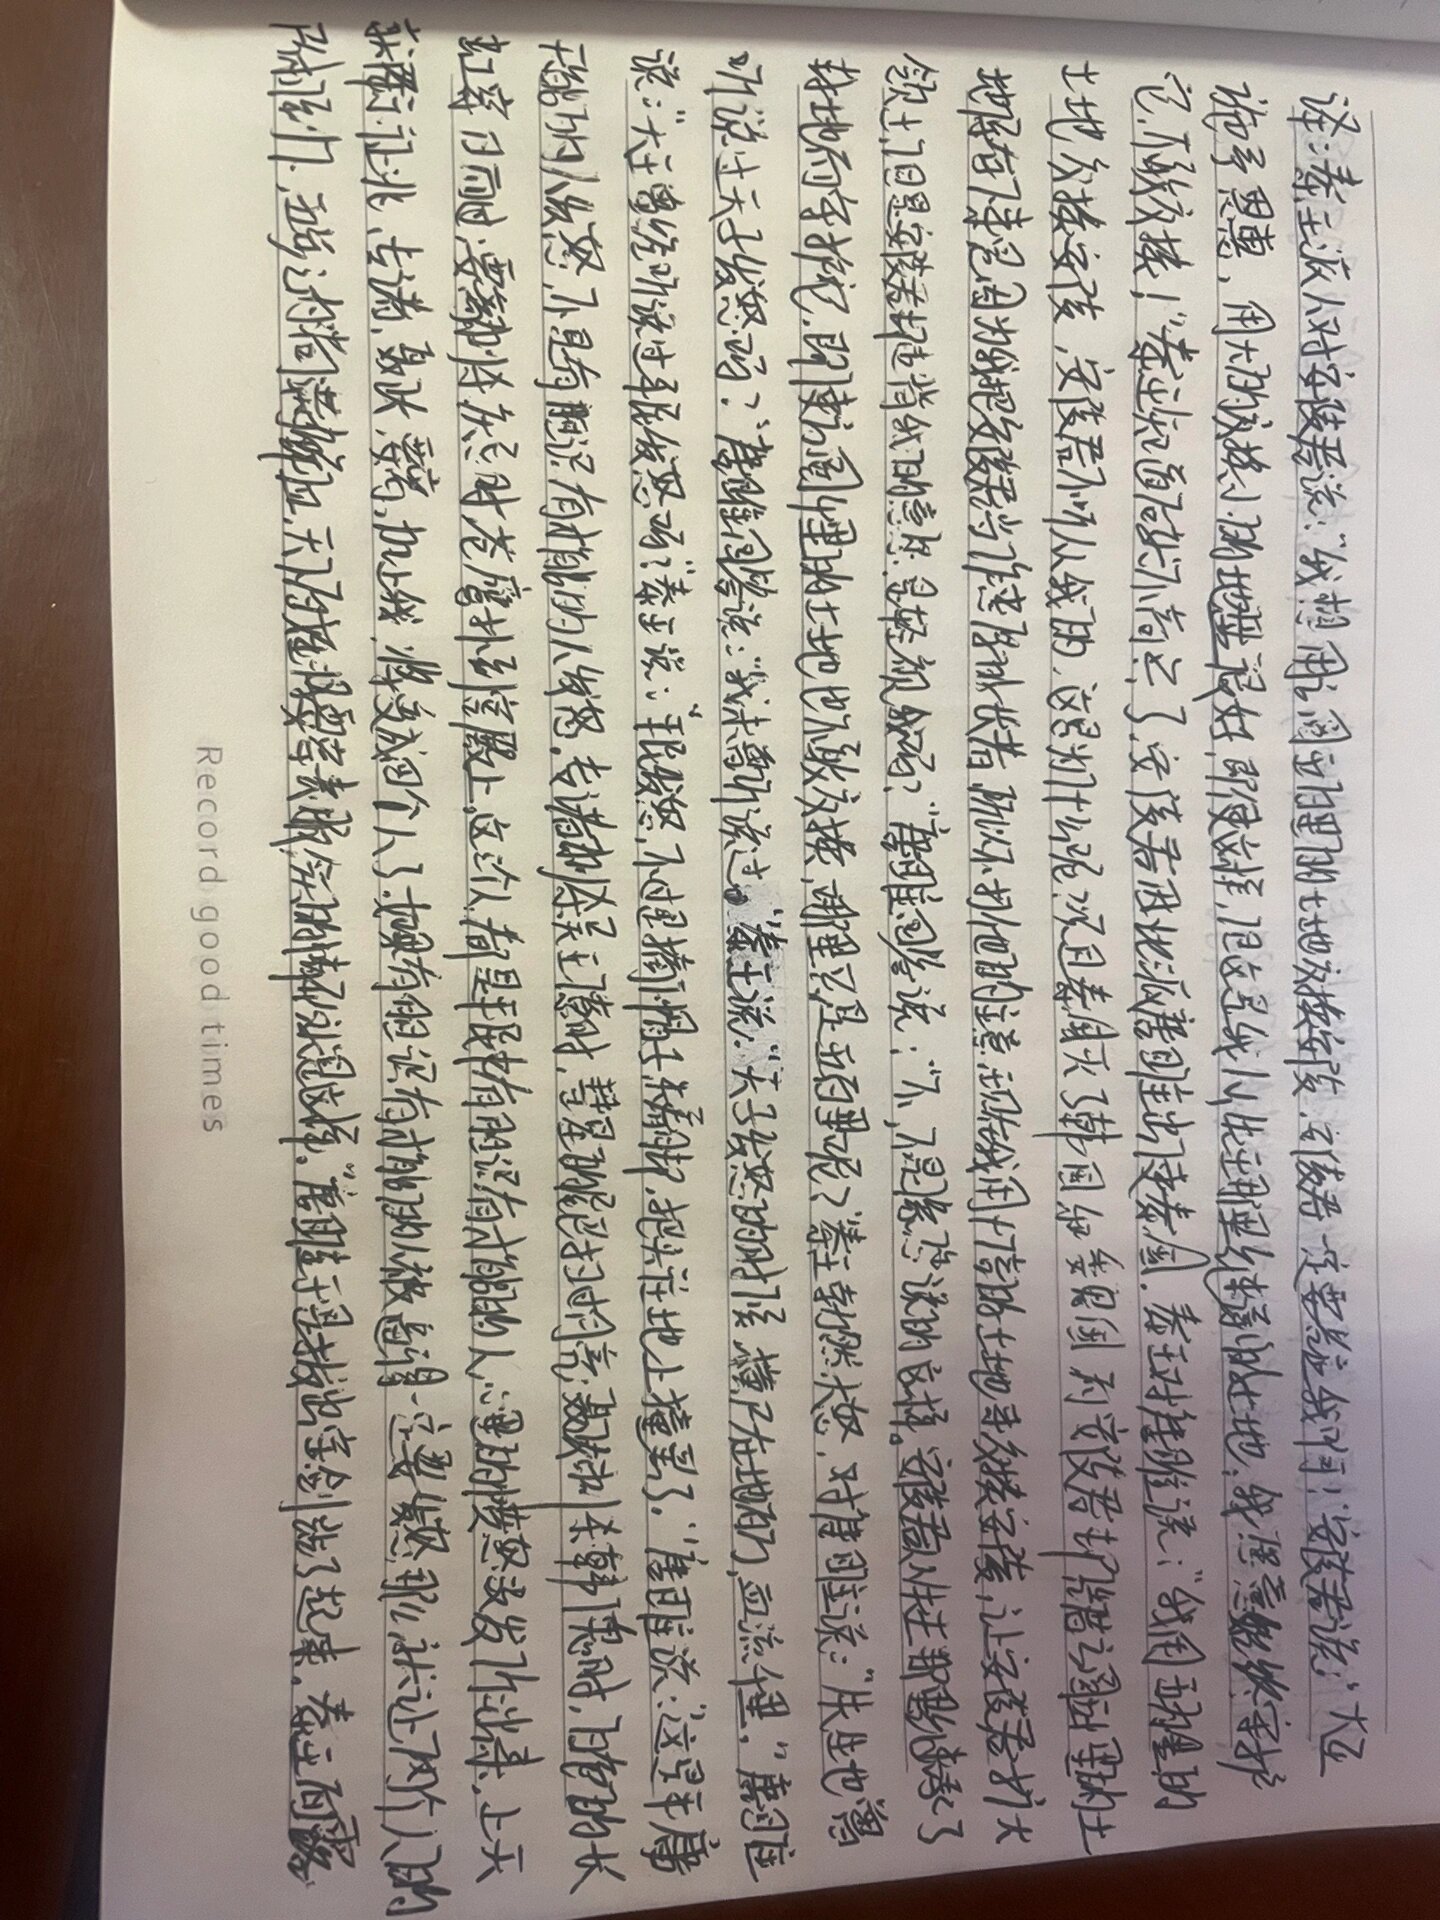 译：秦王派人对安陵君说："我想用方圆五百里的土地交换安陵，安陵君一定要答应我啊！安陵君说："大王
施予恩惠，用大的交换小的，哪里很好，即使这样，但这是我从先王那里继承的土地，我愿意始终守护
它，不敢交换！"秦王知道后非常不高兴了，安陵君因此派唐雎出使秦国。秦王对唐雎说："我用五百里的
土地交换安陵，安陵君不听从我的，这是为什么呢？况且秦国灭了韩国和魏国，安陵君
把安陵君当作忠厚的长者，所以不打他的主意。现在我用十倍的土地交换安陵，让安陵君扩大
领土，但是安陵君违背我的意思，是轻视我吗？"唐雎回答说："不，不是像您说的这样。安陵君从先王那里继承了
土地而守护它，即使方圆千里的土地也不敢交换，哪里只是五百里呢？"秦王勃然大怒，对唐雎说："先生也曾
听说过天子发怒吗？"唐雎回答说："我未曾听说过。"秦王说："天子发怒的时候，倒下百万，血流千里。"唐雎
说："大王曾经听说过平民发怒吗？"秦王说："平民发怒，不过是摘掉帽子光着脚，把头往地上撞罢了。"唐雎说："这是平庸
无能的人发怒，不是有胆识有才能的人发怒。专诸刺杀吴王僚时，彗星的尾巴扫过月亮；聂政刺杀韩傀时，白色的长
虹穿日而过；要离刺杀庆忌时，苍鹰扑到宫殿上。这三个人，都是平民中有胆识有才能的人，心里的愤怒没发作出来，上天
就降下征兆。专诸、聂政、要离，加上我，将变成四个人了。如果有胆识有才能的人被逼得一定要发怒，那么就让两个人的
尸体倒下，五步之内淌满鲜血，天下百姓都要穿着丧服，今天的情况就是这样。"唐雎于是拔出宝剑站了起来。秦王面露
Record good times